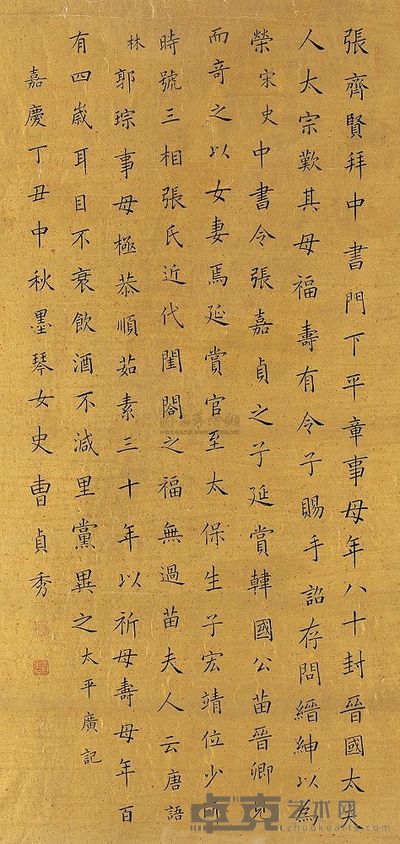 張齊賢拜中書門下平章事母年八十封晉國太夫
人太宗歎其母福壽有令子賜手詔存問縉紳以為
榮 宋史 中書令張嘉貞之子延賞韓國公苗晉卿見
而奇之以女妻焉延賞官至太保生子宏靖位少師
時號三相張氏近代閨閤之福無過苗夫人云 唐語
林 郭琮事母極恭順茹素三十年以祈母壽母年百
有四歲耳目不衰飲酒不減里黨異之 太平廣記
嘉慶丁丑中秋墨琴女史曹貞秀
卓克艺术网
zhuokearts.com